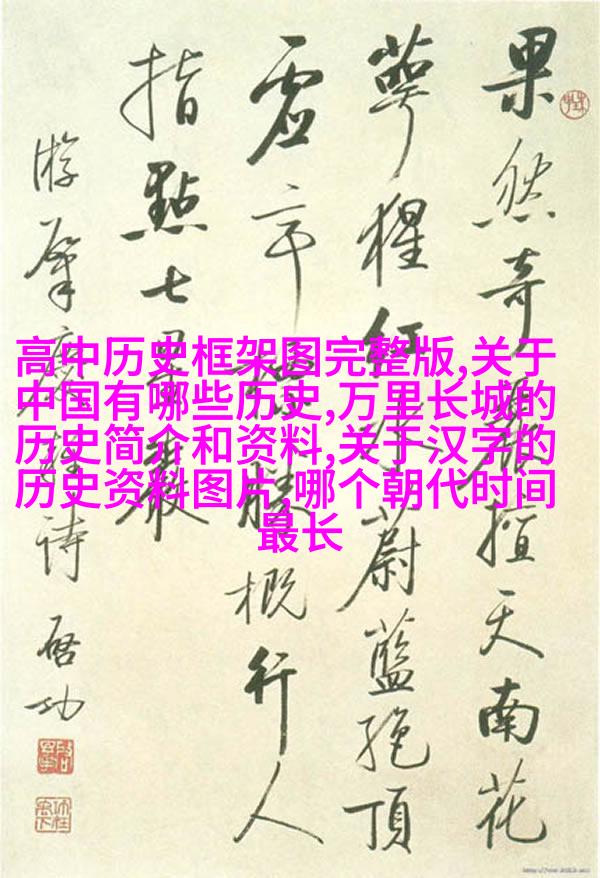 果然奇麗擅天南花
萼猩紅水蔚藍絕頂
虛亭標勝概行人
指點七星巖
游肇慶雜詩 啓功
高中历史框架图完整版,关于
中国有哪些历史,万里长城的
历史简介和资料,关于汉字的
历史资料图片,哪个朝代时间
最长